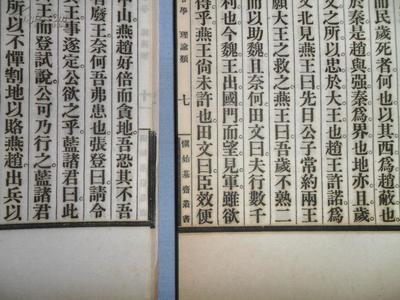 而民歲死者何也以其西爲趙蔽也
於秦是趙與强秦爲界也地亦且歲
文之所以忠於大王也趙王許諾爲
又北見燕王曰先日公子常約兩王
願大王之救之燕王曰吾歲不熟二
而以助魏且奈何田文曰夫行數千
利也今魏王出國門而望見軍雖欲
得乎燕王尚未許也田文曰臣效便
學 理論類 七 慎始基齋叢書
中山燕趙好倍而貪地吾恐其不吾
廢王奈何吾弗患也張登曰請令
王事遂定公欲之乎藍諸君曰此
王而登試說公可乃行之藍諸君
所以不憚割地以賂燕趙出兵以